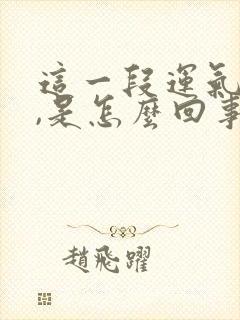 這一段運氣
,是怎麼回事
趙飛躍